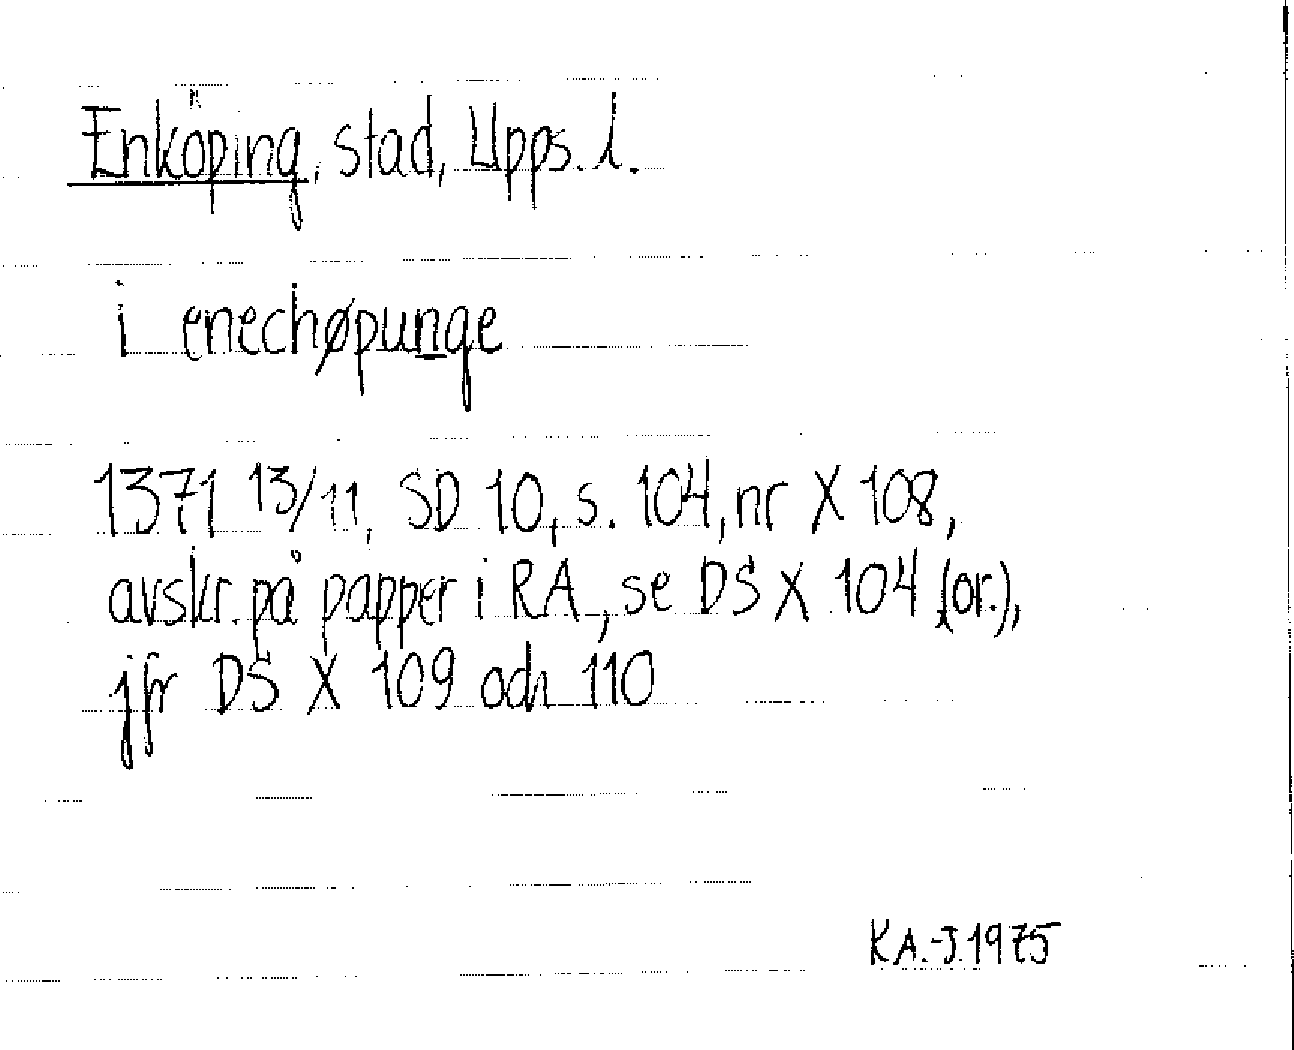 Enköping, stad, Upps. l.
i enechøpunge
1371 13/11, SD 10, s. 104, nr X 108,
avskr. på papper i RA, se DS X 104 (or.),
jfr DS X 109 och 110
KA.-J. 1975